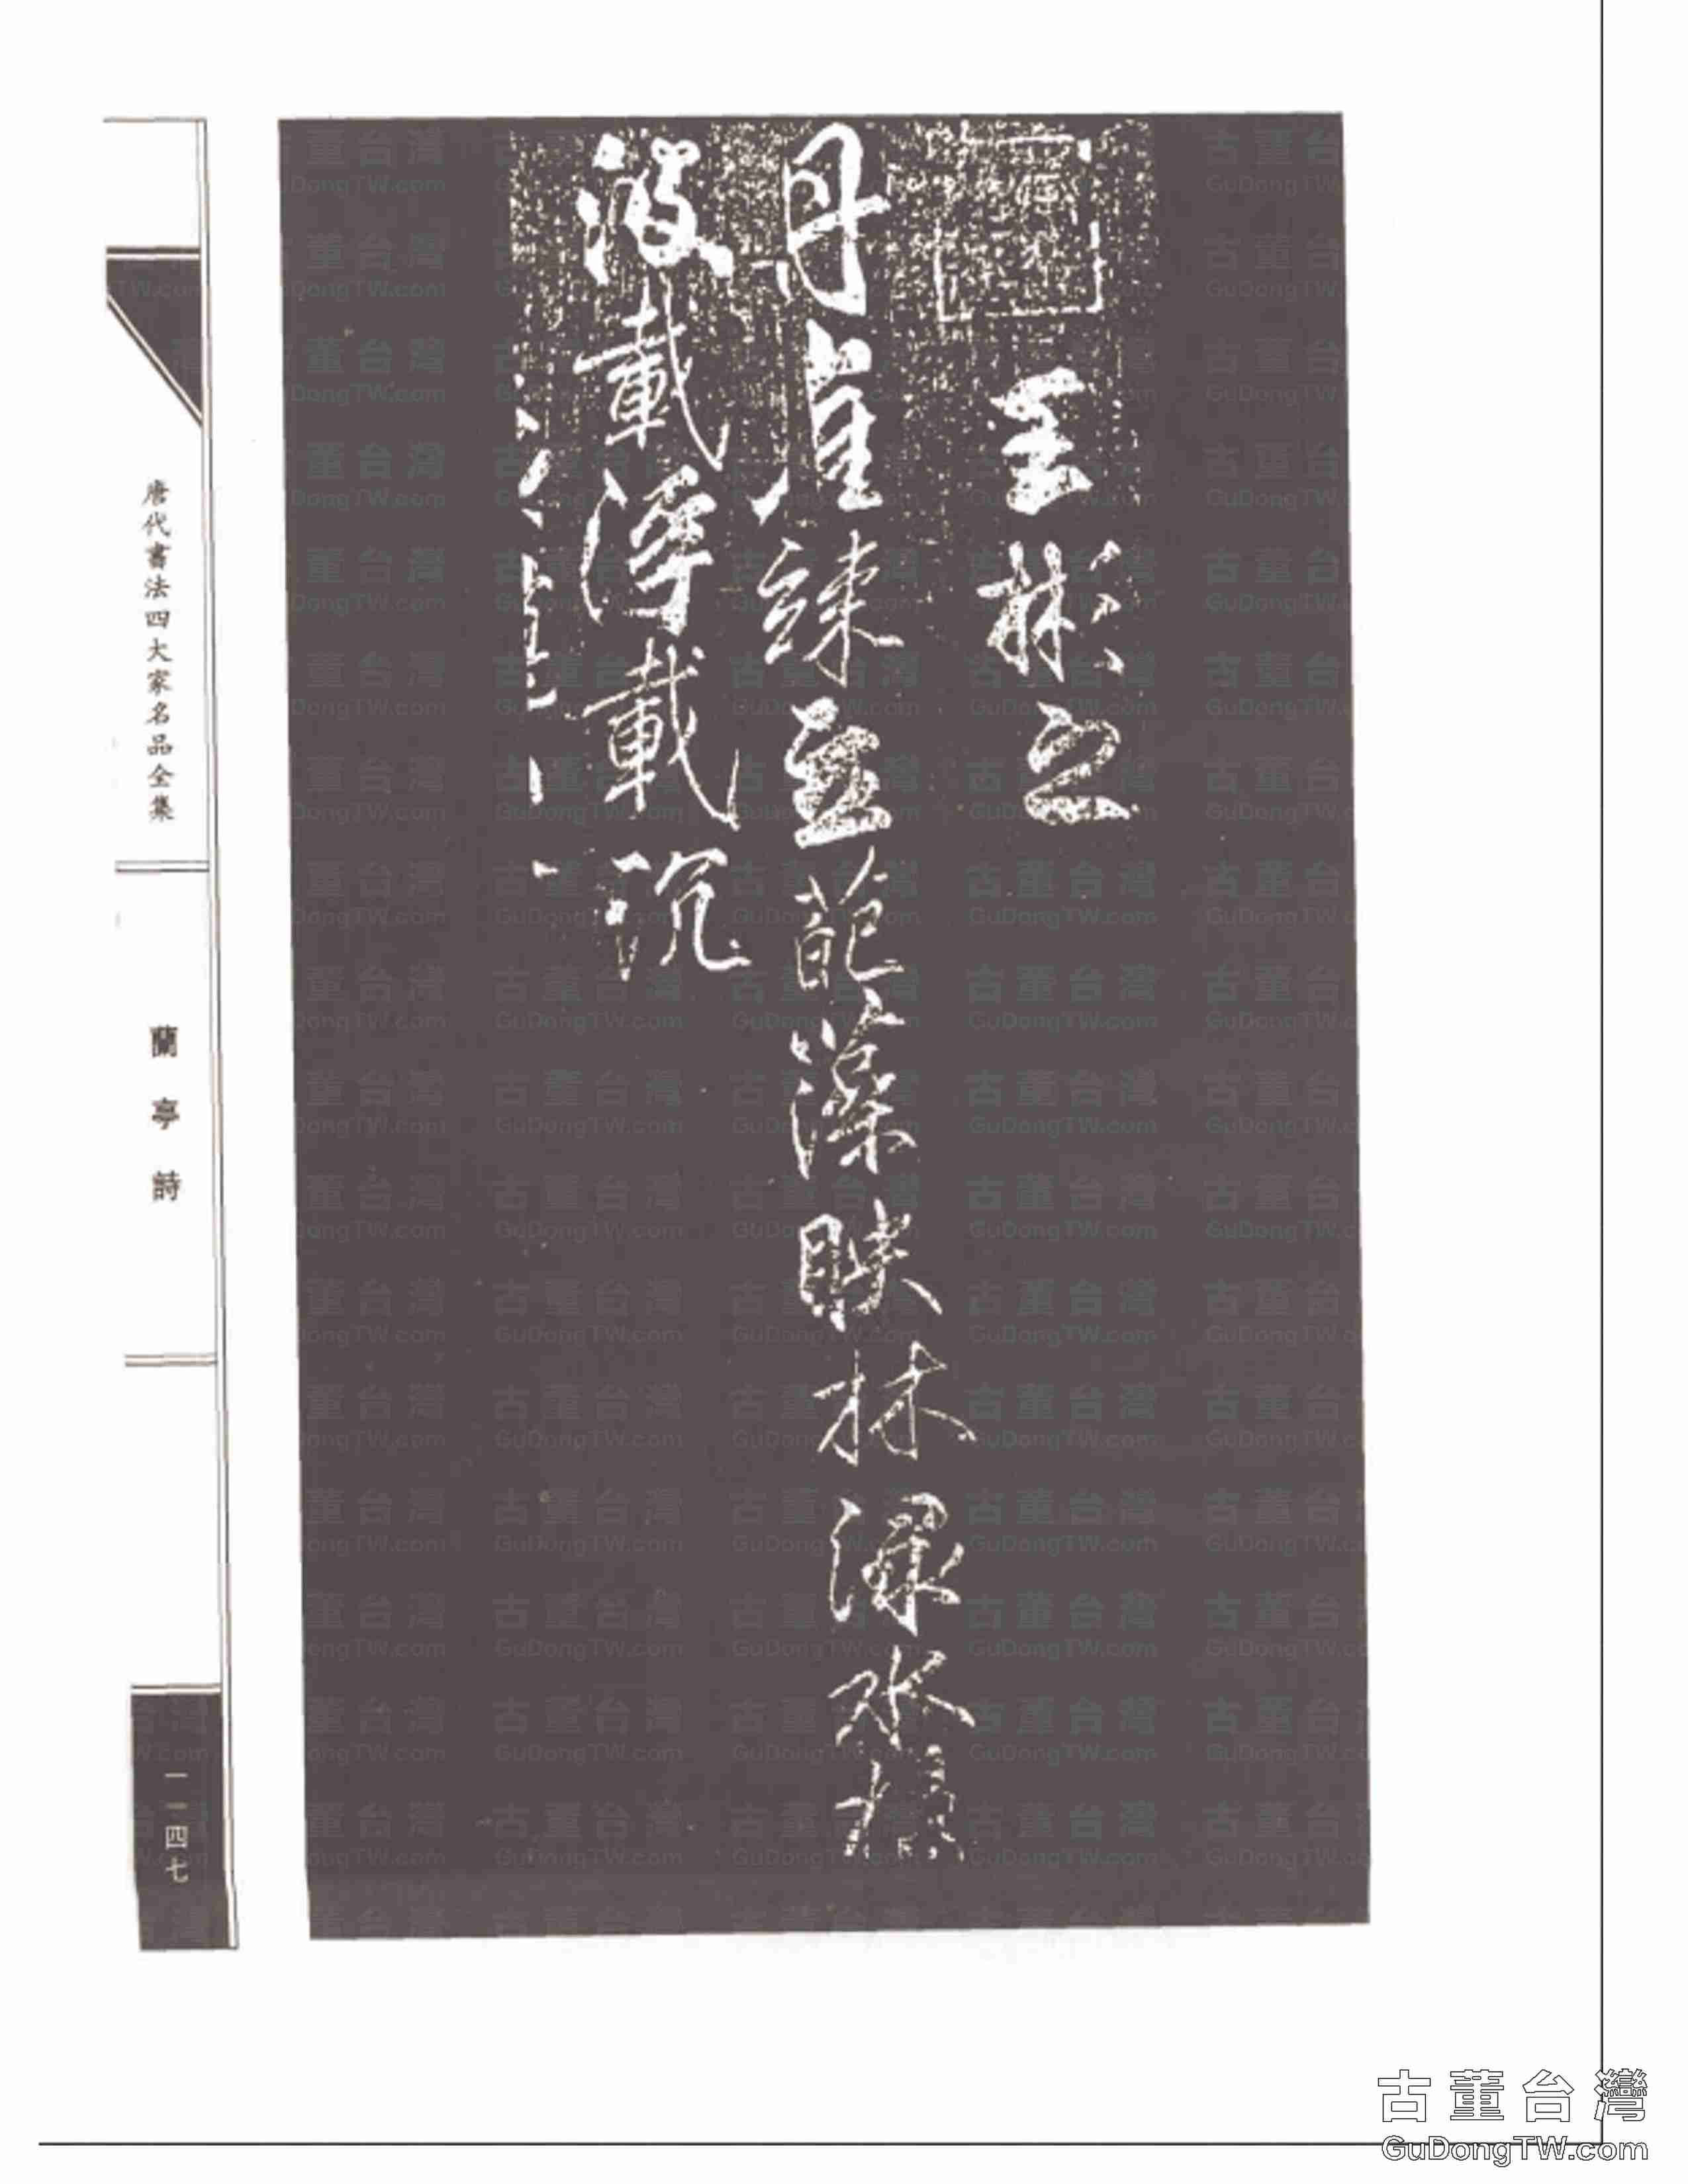 王彬之
丹崖竦立葩藻映林淥水揚
波載浮載沉
唐代書法四大家名品全集
蘭亭詩
一一四七
古董台灣
GuDongTW.com